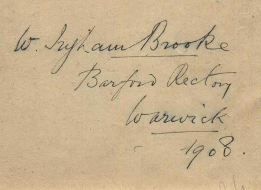 W. Ingham Brooke
Barford Rectory
Warwick
1908.